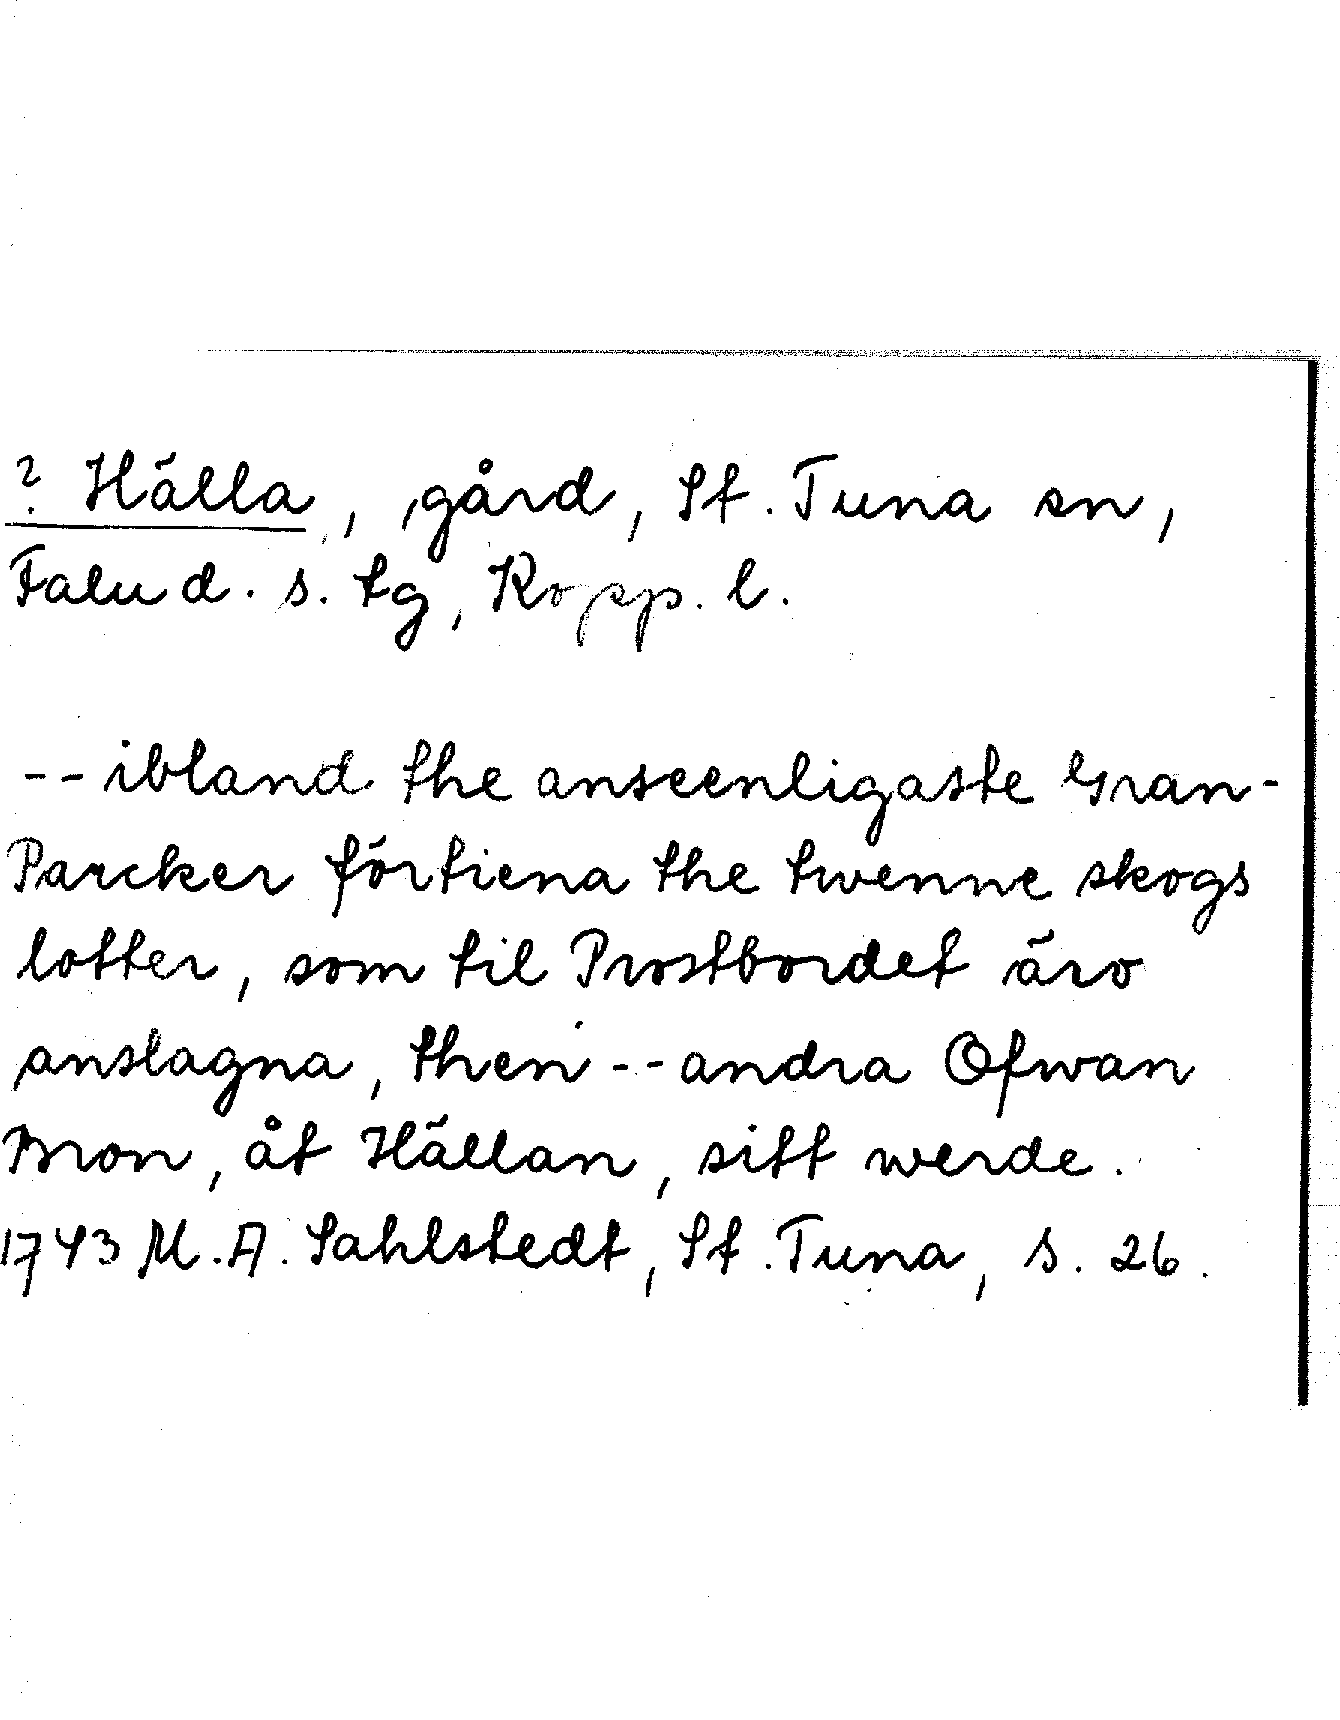 ? Hälla, gård, St. Tuna sn,
Falu d. s. tg, Kopp. l.
-- ibland the anseenligaste Gran-
Parcker förtiena the twenne skogs
lotter, som til Prostbordet äro
anslagna, then -- andra Ofwan
Bron, åt Hällan, sitt werde.
1743 M. A. Sahlstedt, St. Tuna, s. 26.